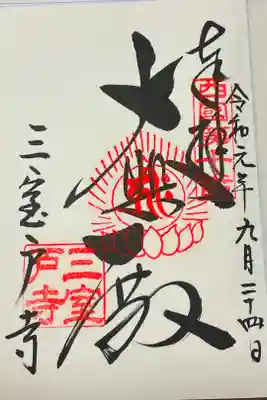 奉拝
令和元年九月二十四日
大悲殿
三室戸寺
三室
戸寺